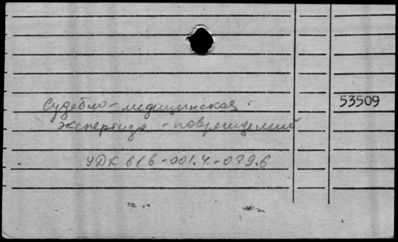 Судебно-медицинская
53509
экспертиза - повреждений
УДК 616-001.4.-079.6